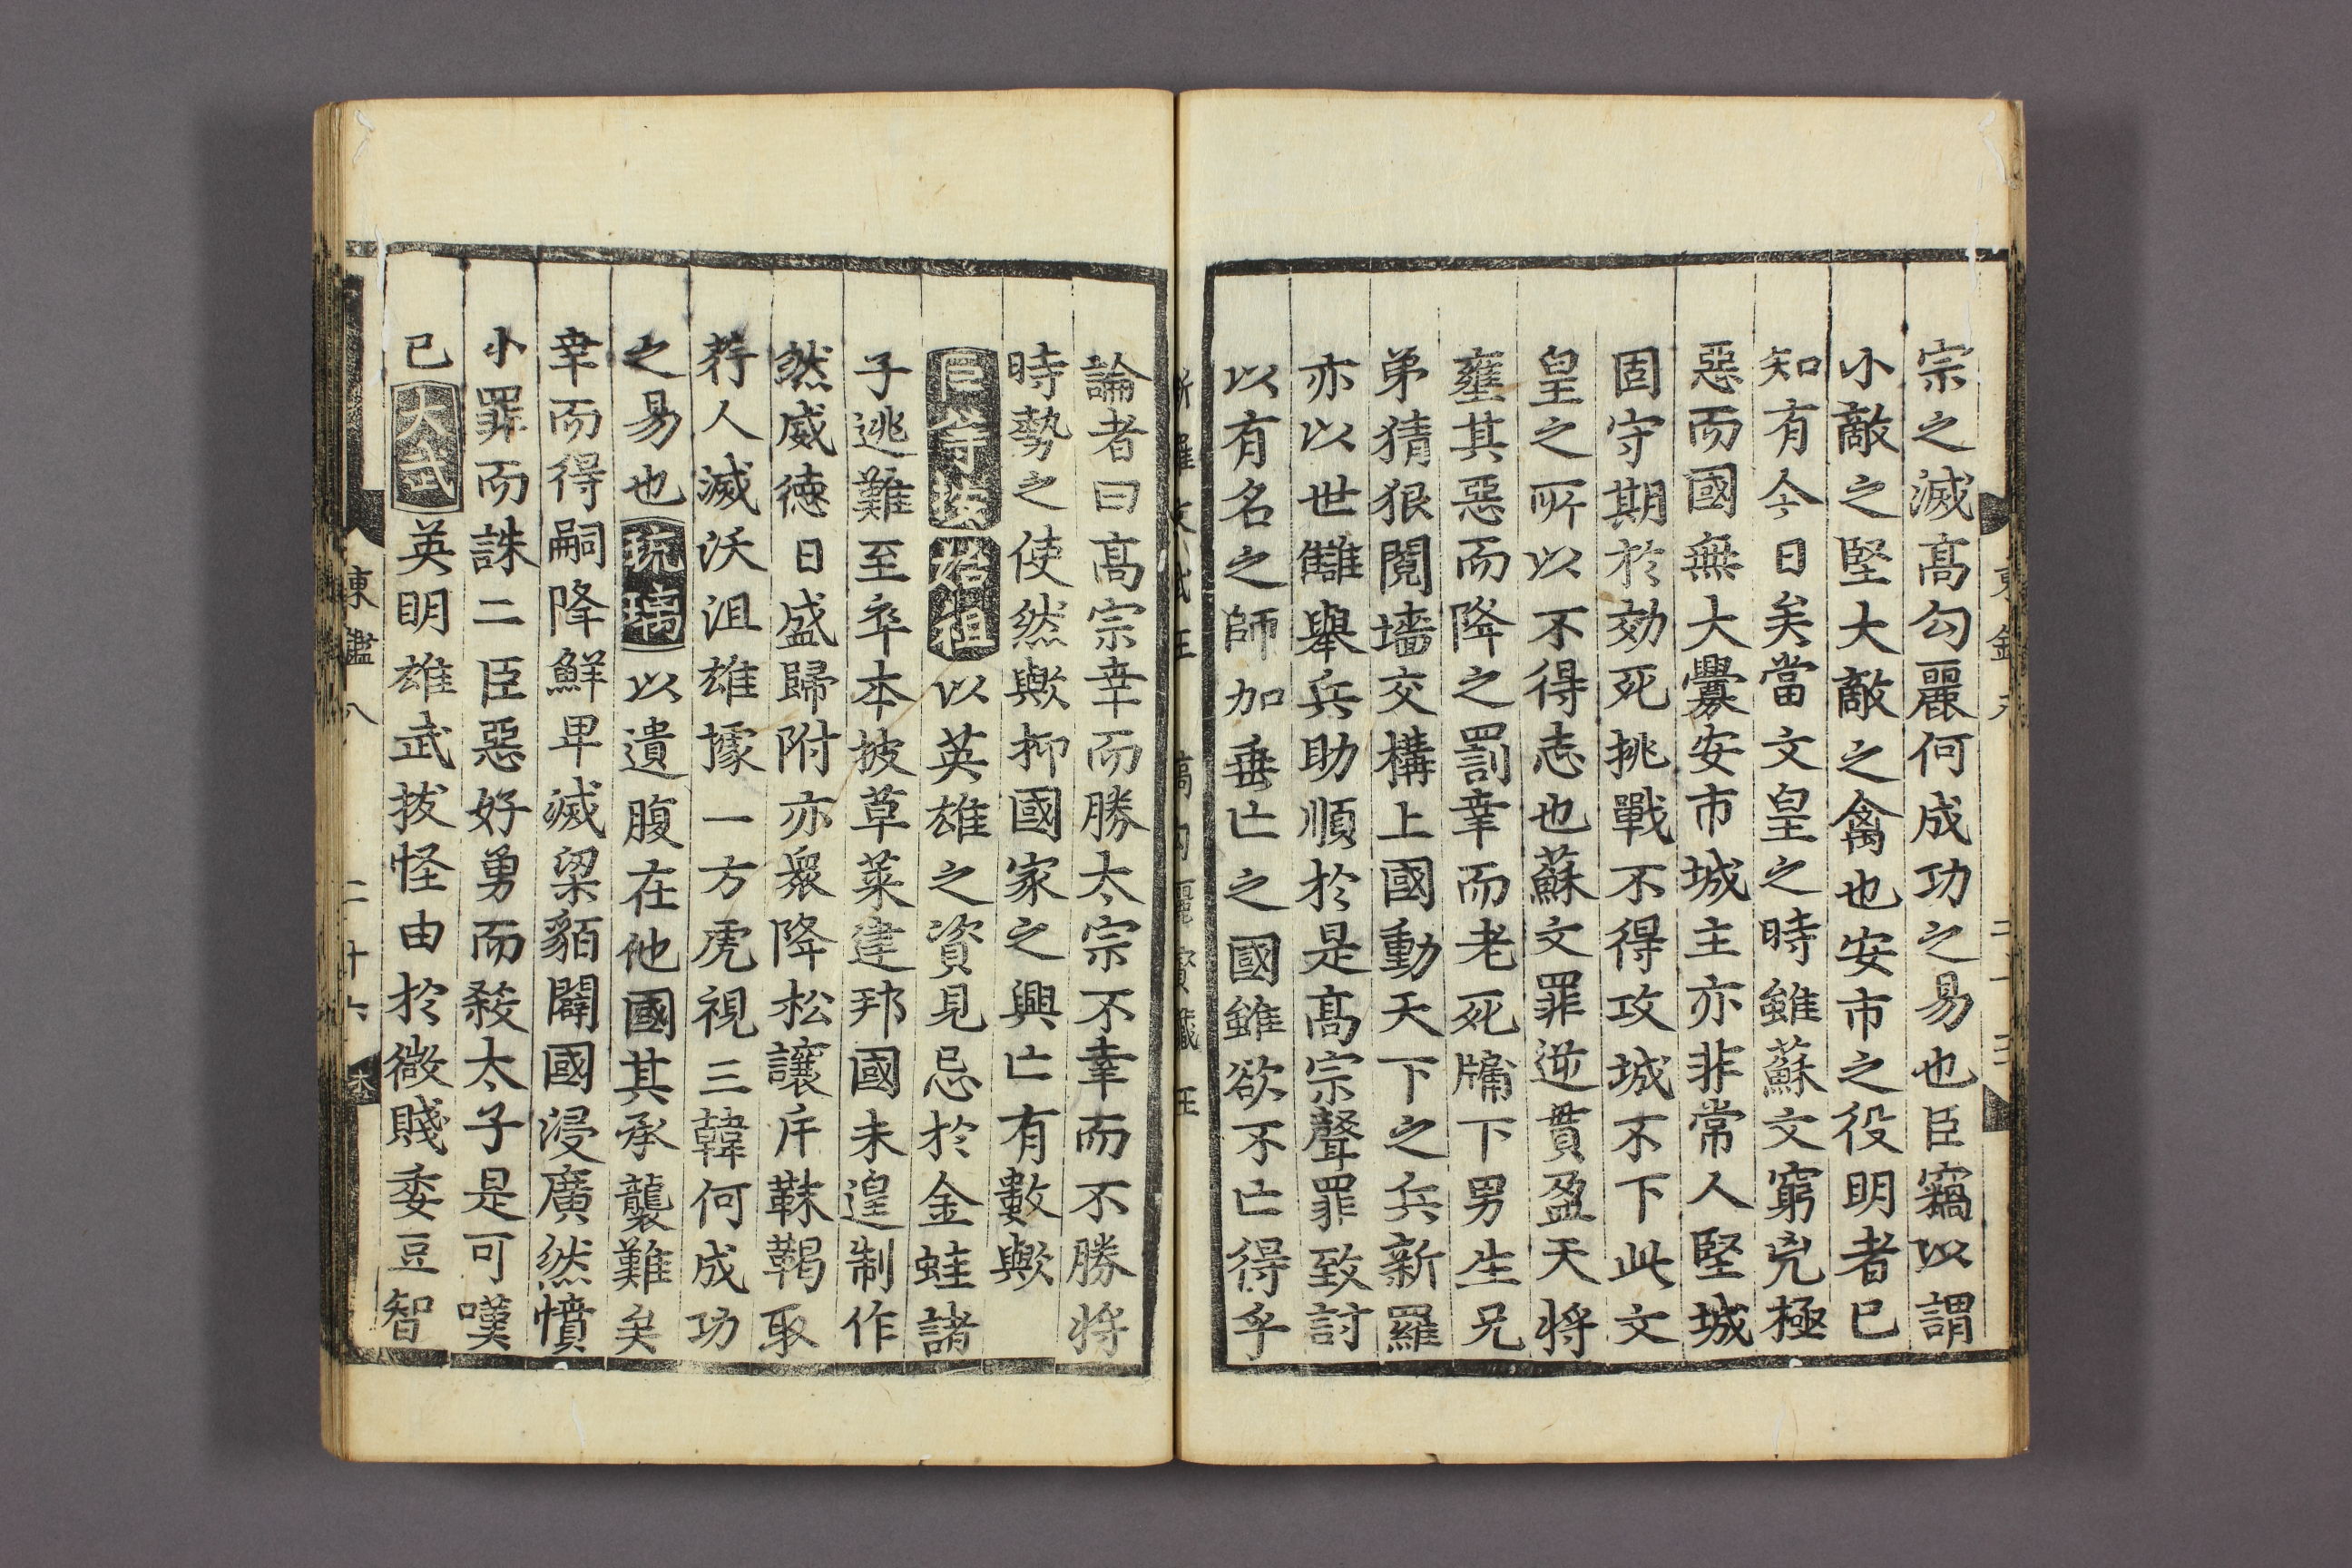 宗之滅髙勾麗何成功之易也臣竊以謂
小敵之堅大敵之禽也安市之役明者已
知有今日矣當文皇之時雖蘇文窮兇極
惡而國無大釁安市城主亦非常人堅城
固守期於効死挑戰不得攻城不下此文
皇之所以不得志也蘇文罪逆貫盈天將
壅其惡而降之罰幸而老死牖下男生兄
弟猜狠鬩墻交構上國動天下之兵新羅
亦以世讎舉兵助順於是髙宗聲罪致討
以有名之師加垂亡之國雖欲不亡得乎
論者曰髙宗幸而勝太宗不幸而不勝將
時勢之使然歟抑國家之興亡有數歟
臣等按始祖以英雄之資見忌於金蛙諸
子逃難至卒本披草萊建邦國未遑制作
然威德日盛歸附亦衆降松讓斥靺鞨取
荇人滅沃沮雄據一方虎視三韓何成功
之易也琉璃以遺腹在他國其承襲難矣
幸而得嗣降鮮卑滅梁貊闢國浸廣然憤
小罪而誅二臣惡好勇而殺太子是可嘆
已大武英明雄武拔怪由於微賤委豆智
東鑑八
二十六